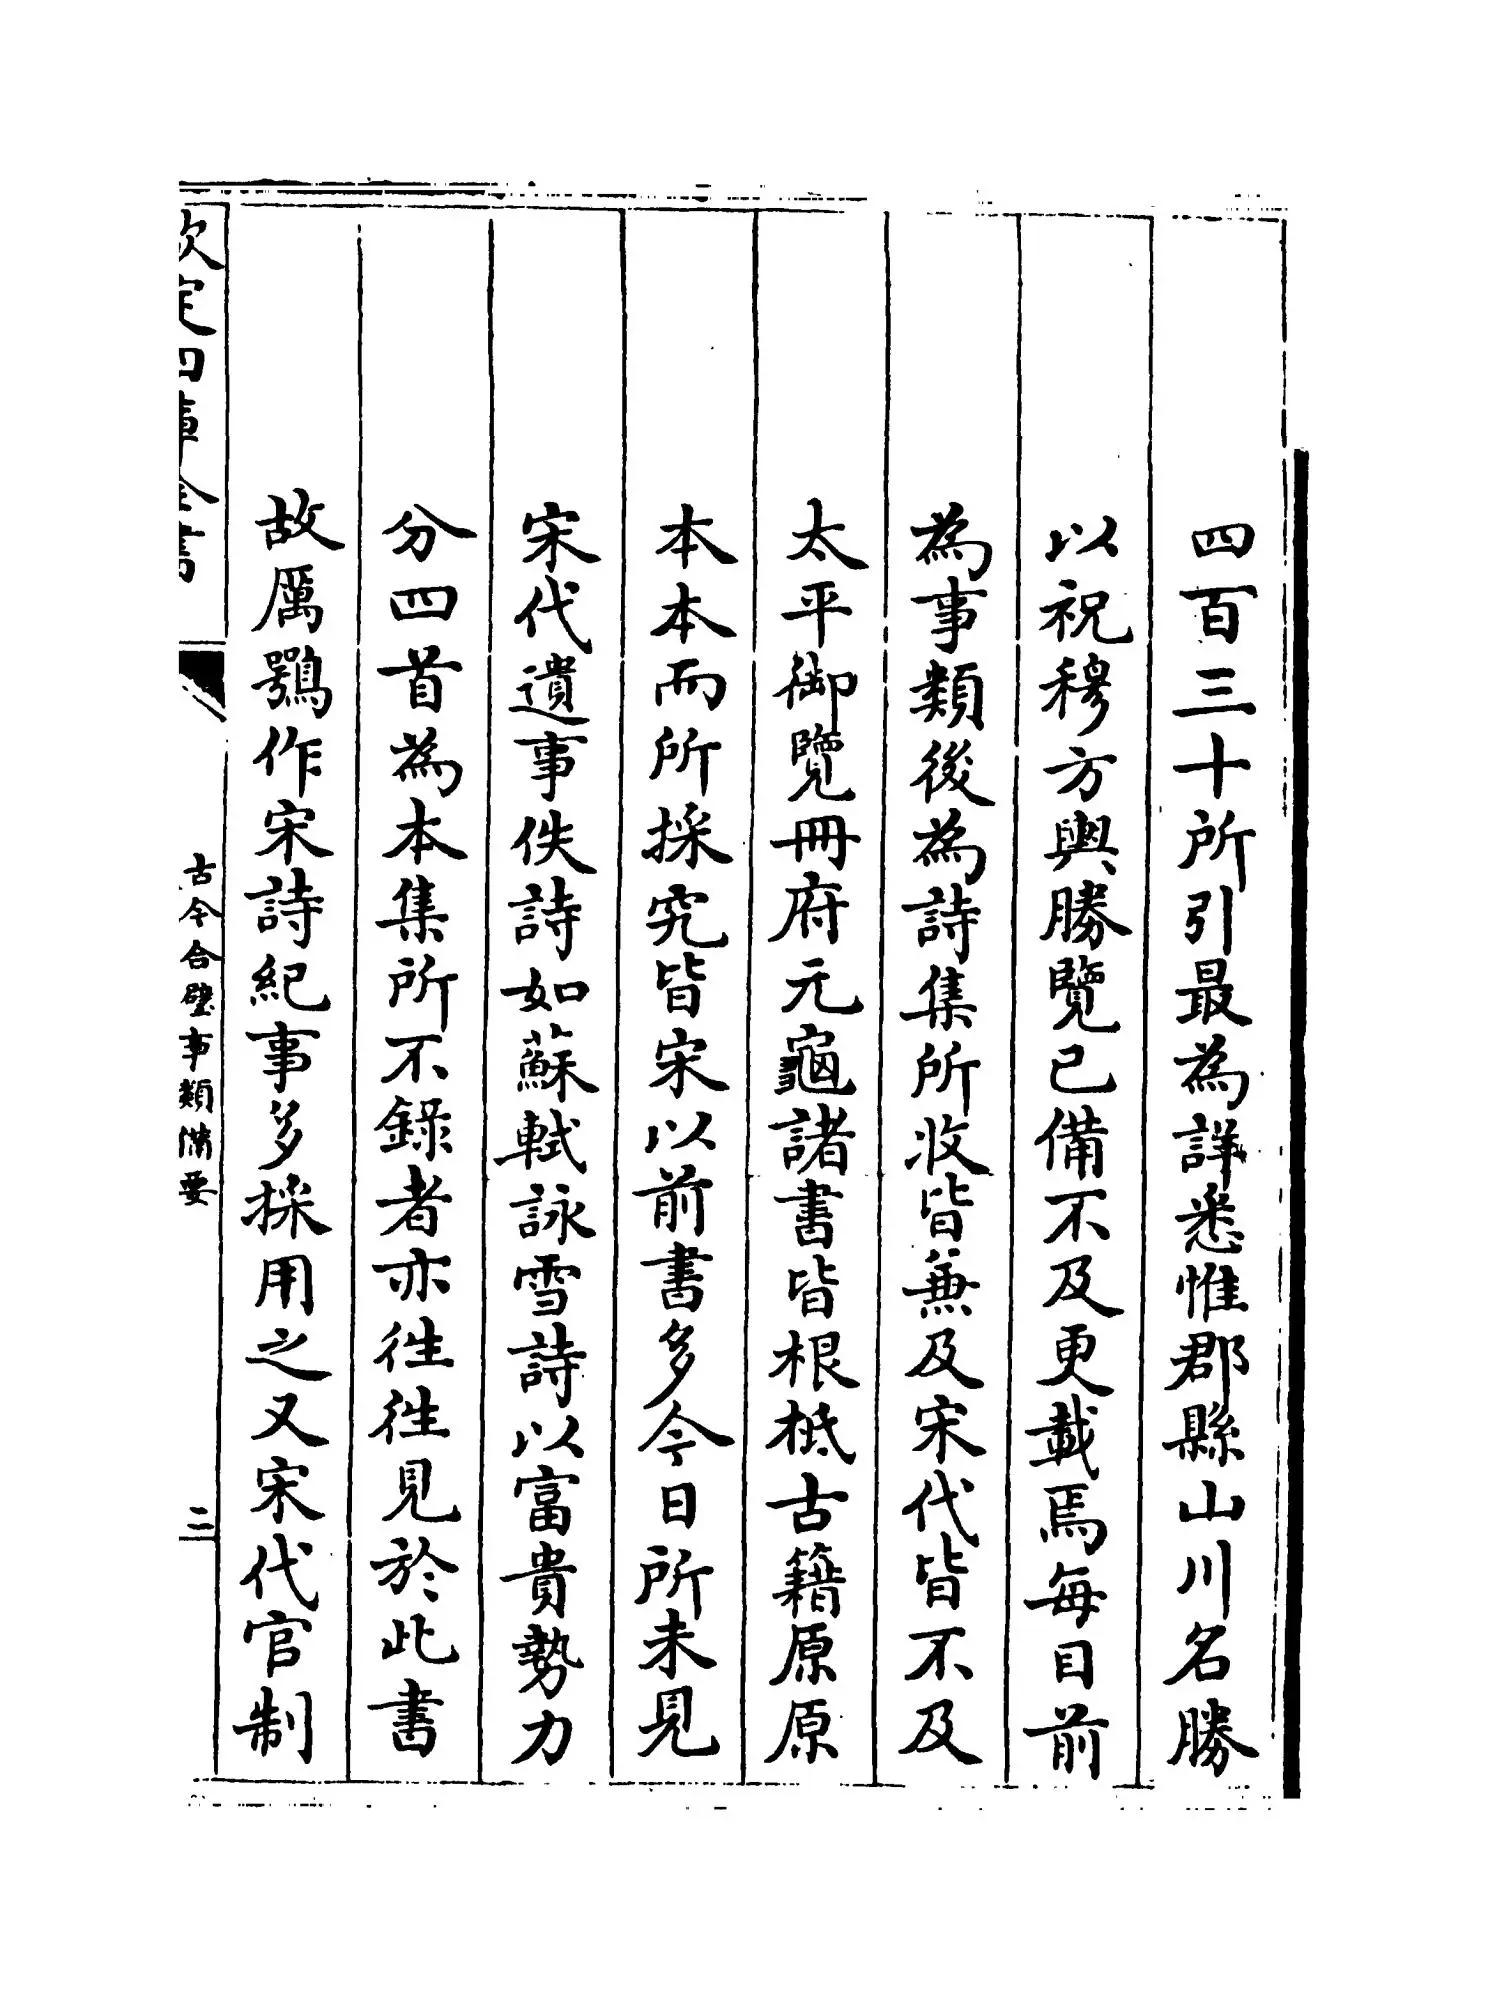 四百三十所引最為詳悉惟郡縣山川名勝
以祝穆方輿勝覽已備不及更載焉每目前
為事類後為詩集所收皆兼及宋代皆不及
太平御覽冊府元龜諸書皆根柢古籍原原
本本而所採究皆宋以前書多今日所未見
宋代遺事佚詩如蘇軾詠雪詩以富貴勢力
分四首為本集所不錄者亦徃徃見於此書
故厲鶚作宋詩紀事多採用之又宋代官制
欽定四庫全書
古今合璧事類備要
二